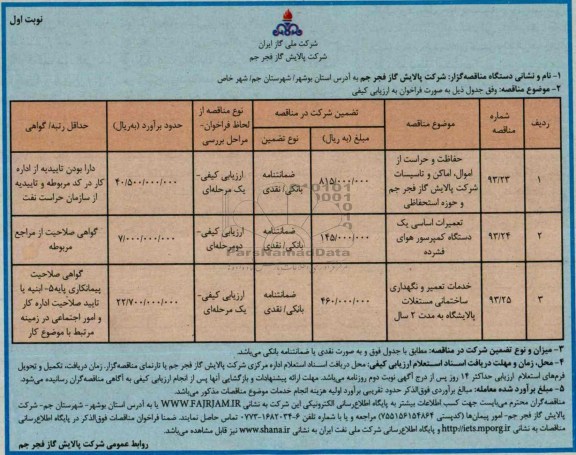 نوبت اول
شرکت ملی گاز ایران
شرکت پالایش گاز فجر جم
۱- نام و نشانی دستگاه مناقصه‌گزار: شرکت پالایش گاز فجر جم به آدرس استان بوشهر/ شهرستان جم/ شهر خاص
۲- موضوع مناقصه: وفق جدول ذیل به صورت فراخوان به ارزیابی کیفی
ردیف
شماره مناقصه
موضوع مناقصه
تضمین شرکت در مناقصه
مبلغ (به ریال)
نوع تضمین
نوع مناقصه از لحاظ فراخوان- مراحل بررسی
حدود برآورد (به‌ریال)
حداقل رتبه/ گواهی
۱
۹۳/۲۳
حفاظت و حراست از اموال، اماکن و تاسیسات شرکت پالایش گاز فجر جم و حوزه استحفاظی
۸۱۵/۰۰۰/۰۰۰
ضمانتنامه بانکی/ نقدی
ارزیابی کیفی- یک مرحله‌ای
۴۰/۵۰۰/۰۰۰/۰۰۰
دارا بودن تاییدیه از اداره کار در کد مربوطه و تاییدیه از سازمان حراست نفت
۲
۹۳/۲۴
تعمیرات اساسی یک دستگاه کمپرسور هوای فشرده
۱۴۵/۰۰۰/۰۰۰
ضمانتنامه بانکی/ نقدی
ارزیابی کیفی- دومرحله‌ای
۷/۰۰۰/۰۰۰/۰۰۰
گواهی صلاحیت از مراجع مربوطه
۳
۹۳/۲۵
خدمات تعمیر و نگهداری ساختمانی مستغلات پالایشگاه به مدت ۲ سال
۴۶۰/۰۰۰/۰۰۰
ضمانتنامه بانکی/ نقدی
ارزیابی کیفی- یک مرحله‌ای
۲۲/۷۰۰/۰۰۰/۰۰۰
گواهی صلاحیت پیمانکاری پایه۵- ابنیه یا تایید صلاحیت اداره کار و امور اجتماعی در زمینه مرتبط با موضوع کار
ParsNamadData
۳- میزان و نوع تضمین شرکت در مناقصه: مطابق با جدول فوق و به صورت نقدی یا ضمانتنامه بانکی می‌باشد.
۴- محل، زمان و مهلت دریافت اسناد استعلام ارزیابی کیفی: محل دریافت اسناد استعلام اداره مرکزی شرکت پالایش گاز فجر جم یا تارنمای مناقصه‌گزار، زمان دریافت، تکمیل و تحویل فرم‌های استعلام ارزیابی حداکثر ۱۴ روز پس از درج آگهی نوبت دوم روزنامه می‌باشد. مهلت ارائه پیشنهادات و بازگشایی آنها پس از انجام ارزیابی کیفی به آگاهی مناقصه‌گران رسانیده می‌شود.
۵- مبلغ برآورد شده معامله: مبالغ برآوردی فوق‌الذکر حدود تقریبی برآورد اولیه هزینه انجام خدمات موضوع مناقصات مذکور می‌باشد.
مناقصه‌گران محترم می‌بایست جهت کسب اطلاعات بیشتر به پایگاه اطلاع‌رسانی الکترونیکی این شرکت به نشانی WWW.FAJRJAM.IR یا به آدرس استان بوشهر- شهرستان جم- شرکت پالایش گاز فجر جم- امور پیمان‌ها (کدپستی ۷۵۵۱۵۶۱۵۴۸۶۴) مراجعه و یا با شماره تلفن ۶-۱۶۸۲۰۳۴-۰۷۷۳ تماس حاصل نمایند. ضمنا فراخوان مناقصات فوق‌الذکر در پایگاه اطلاع‌رسانی مناقصات به نشانی http://iets.mporg.ir و پایگاه اطلاع‌رسانی شرکت ملی نفت ایران به نشانی www.shana.ir نیز قابل مشاهده می‌باشد.
روابط عمومی شرکت پالایش گاز فجر جم